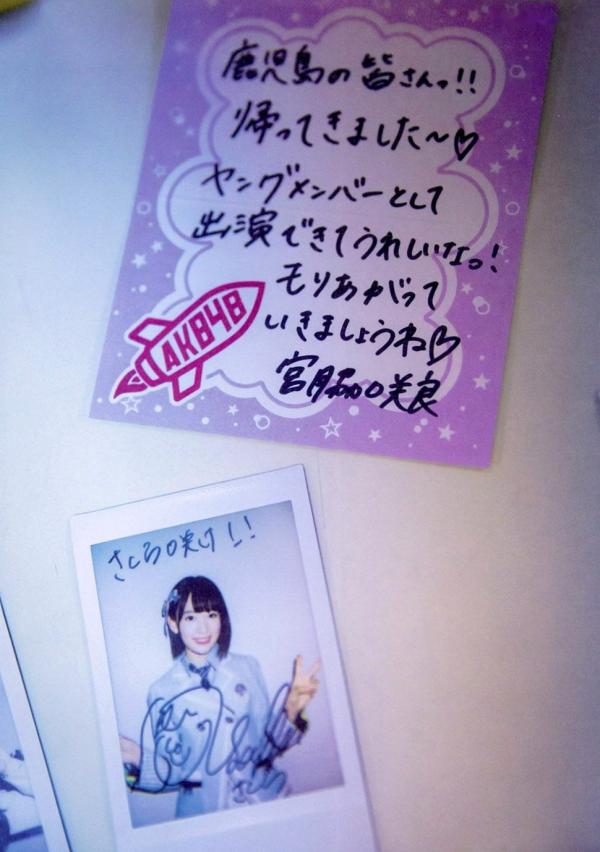 鹿児島の皆さんっ!!
帰ってきました〜♡
ヤングメンバーとして
出演できてうれしいなっ!
もりあがって
いきましょうね♡
宮脇咲良
AKB48
さくら咲け!!